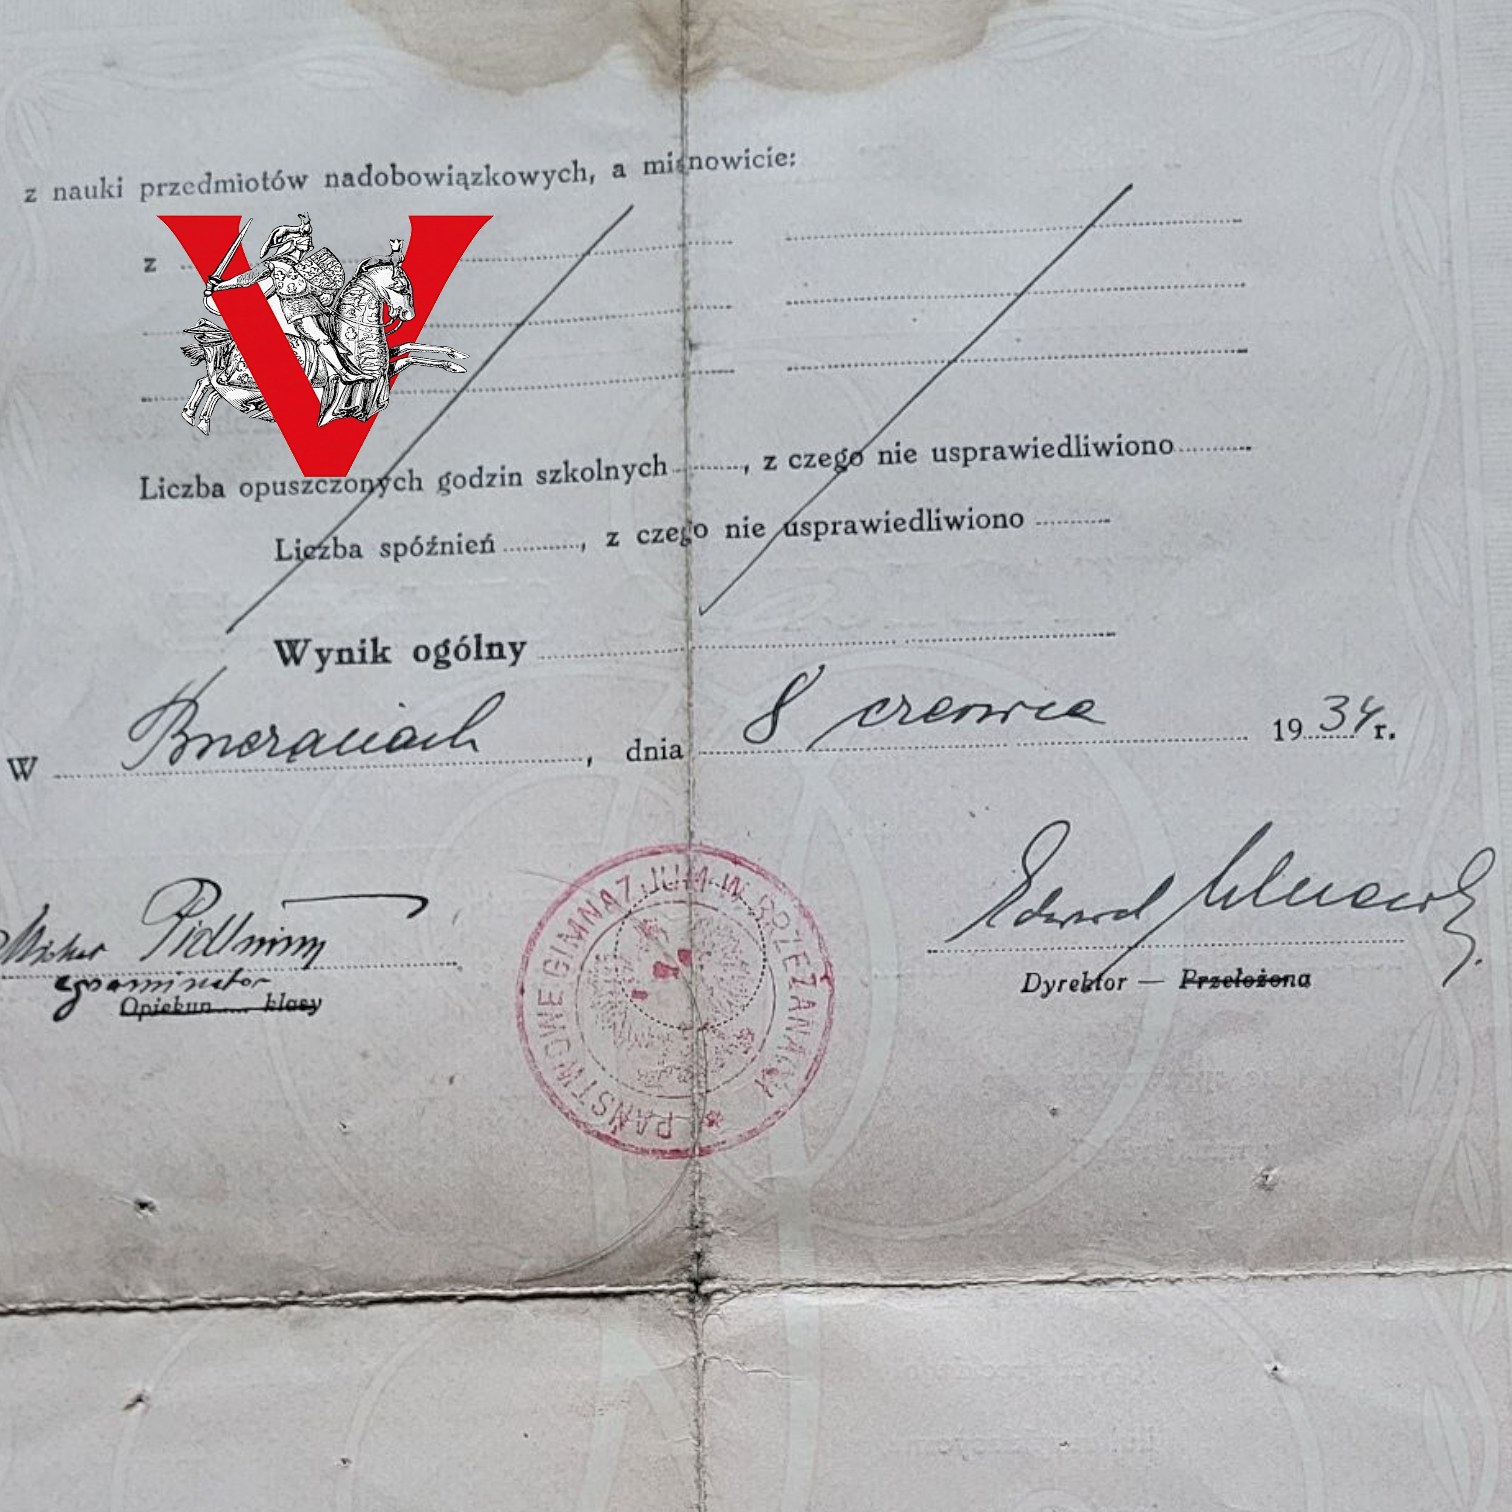 z nauki przedmiotów nadobowiązkowych, a mianowicie:
z
Liczba opuszczonych godzin szkolnych ........, z czego nie usprawiedliwiono ........
Liczba spóźnień ........, z czego nie usprawiedliwiono ........
Wynik ogólny
W Brzeżanach, dnia 8 czerwca 1934 r.
egzaminator
Edward
Opiekun ..... klasy
Dyrektor — Przełożona
PAŃSTWOWE GIMNAZJUM W BRZEŻANACH *
V